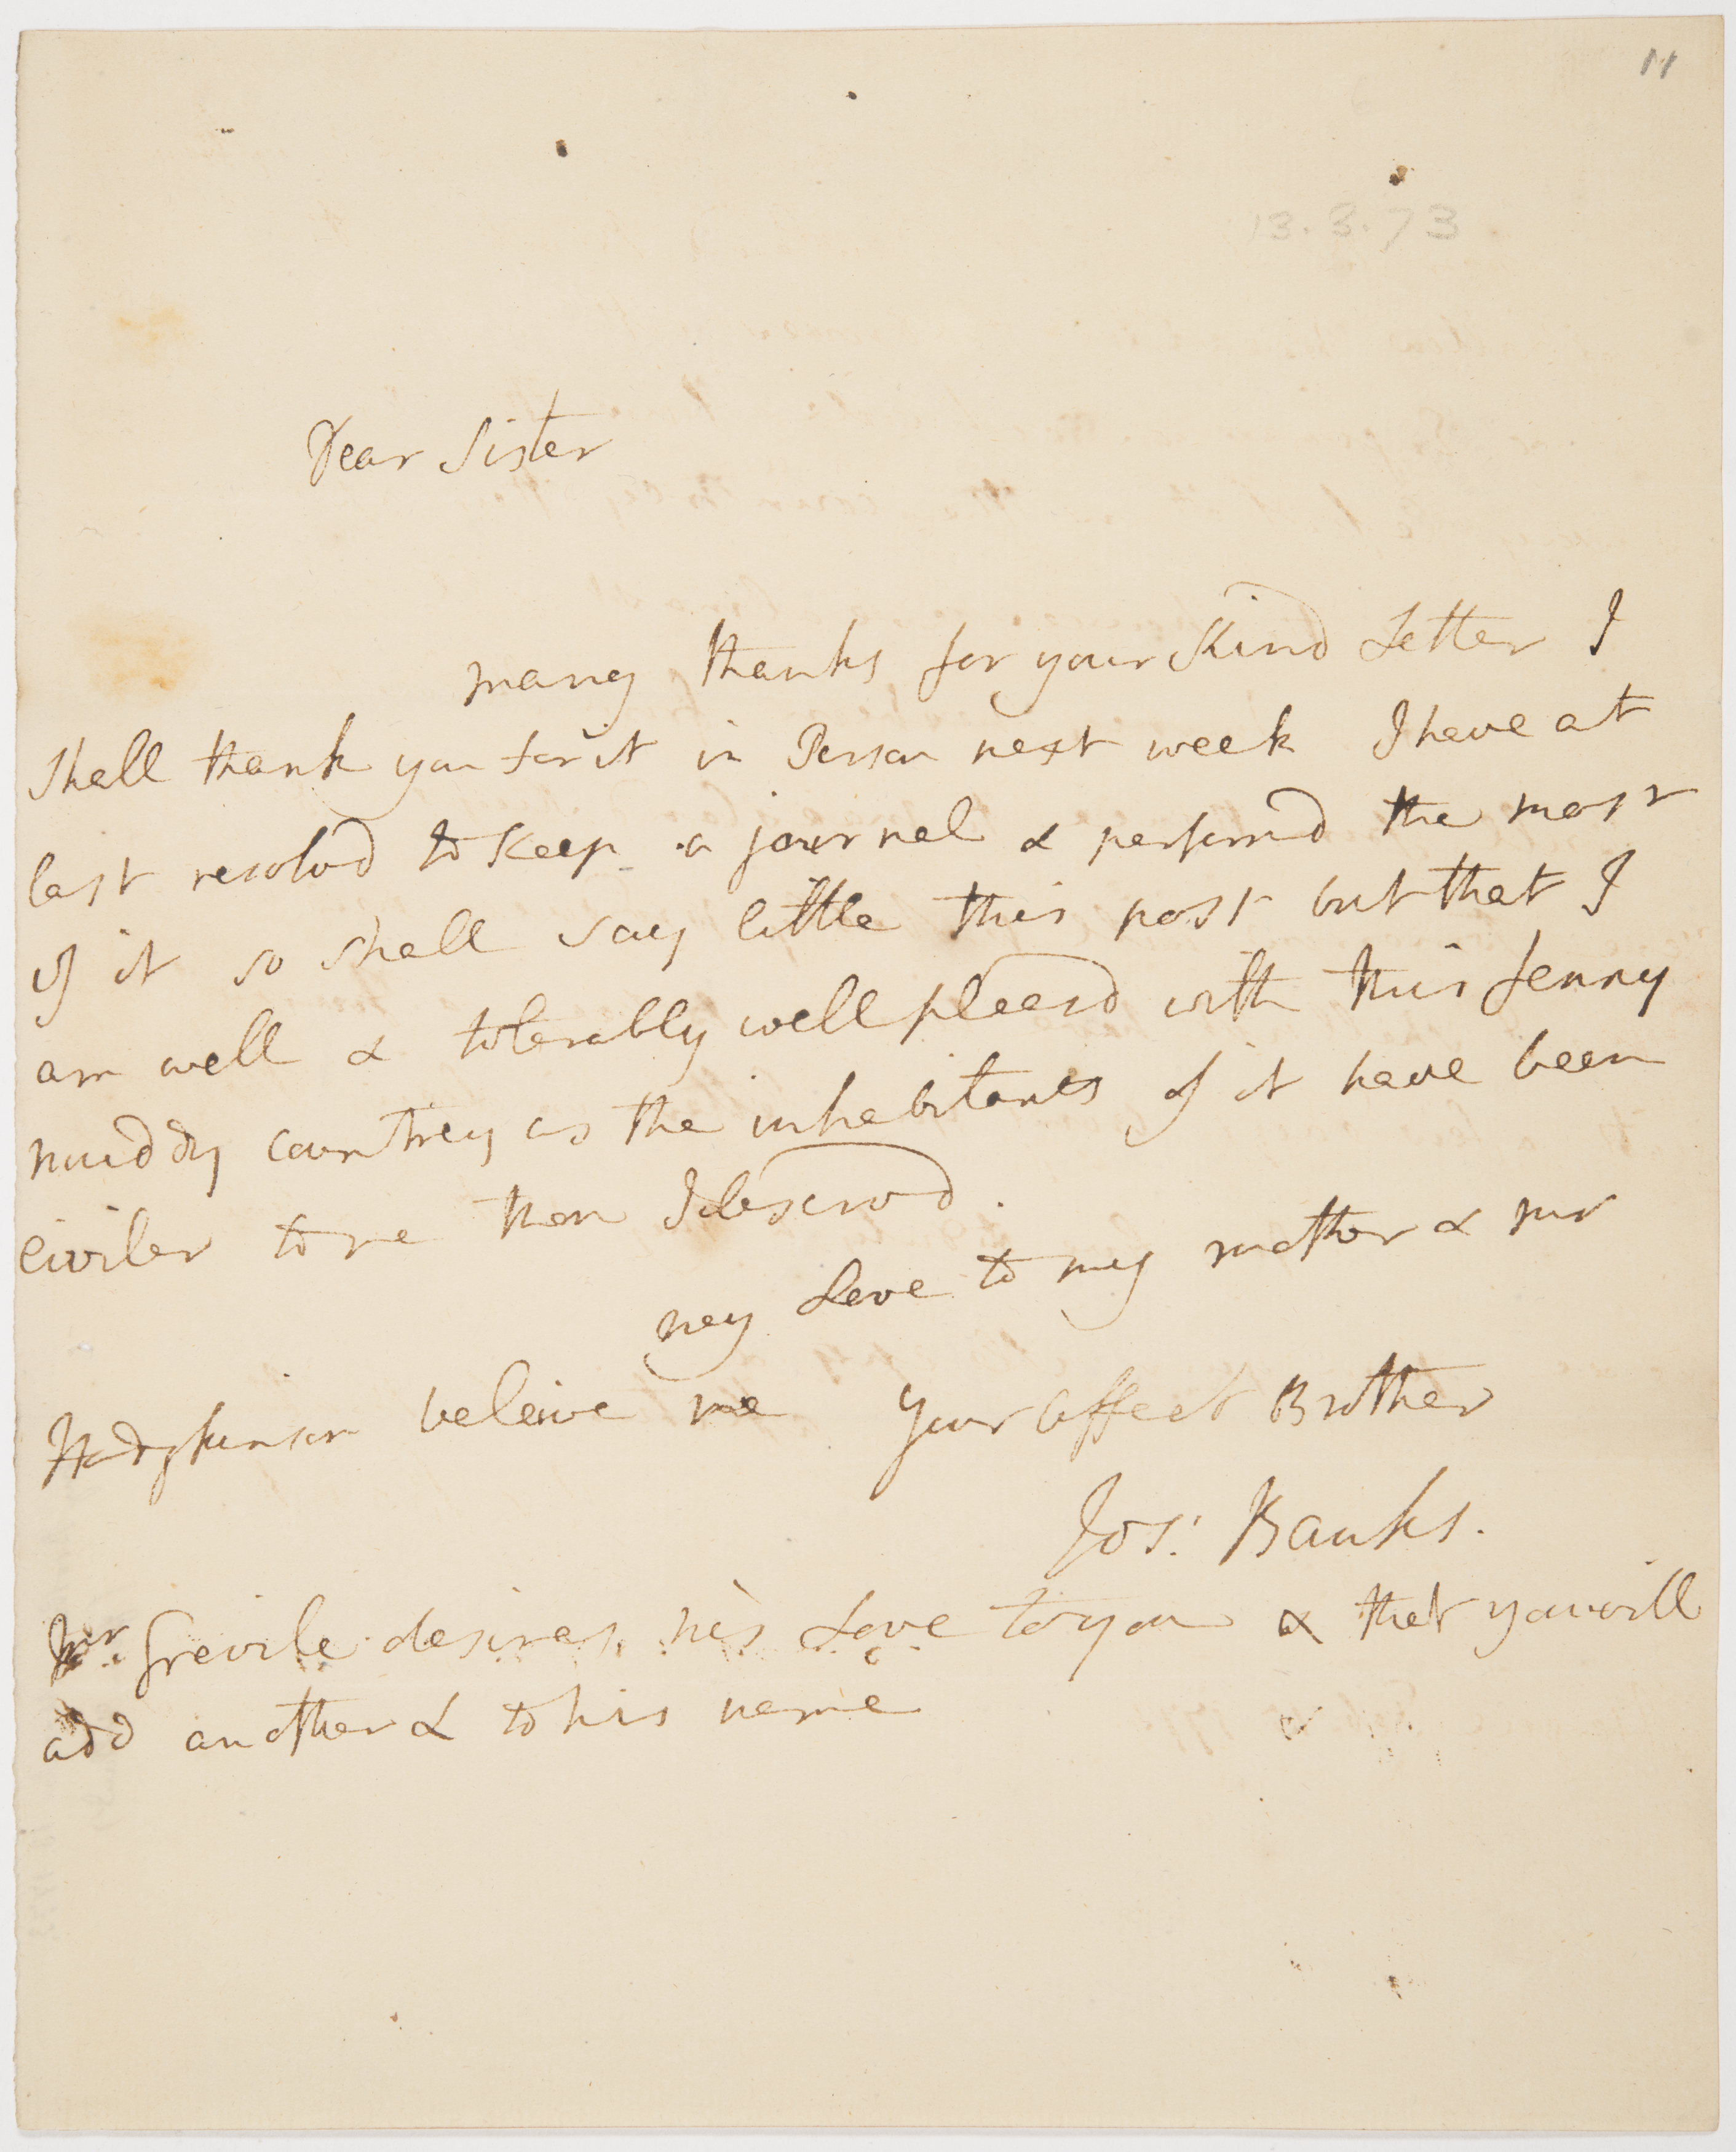 11
13.3.73
Dear Sister
many thanks for your Kind Letter I
Shall thank you for it in Person next week I have at
last resolvd to Keep a journal & performd the most
of it so shall say little this post but that I
am well & tolerably well pleasd with this fenny
muddy countrey as the inhabitants of it have been
civiler to me than I deservd.
my Love to my mother & mr
Hodgkinson beleive me your affect Brother
Jos: Banks.
Mr. Grevile desires his Love to you & that you will
add another L to his name